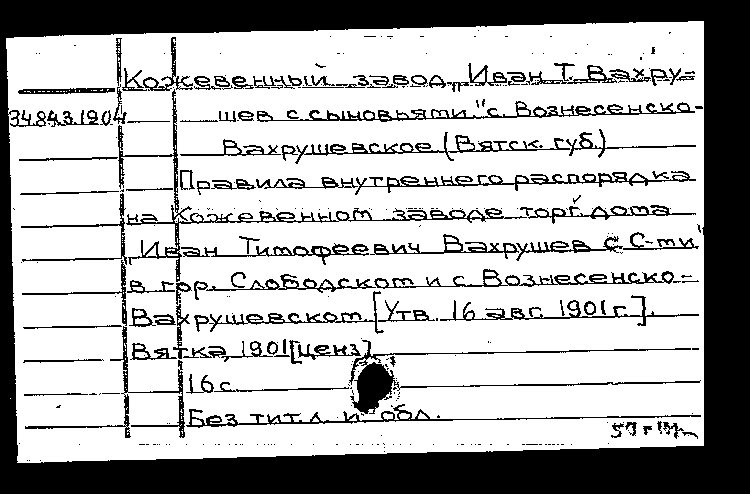 Кожевенный завод „Иван Т. Вахру=
34.84.3.1904 шев с сыновьями." с. Вознесенско-
Вахрушевское (Вятск. губ.)
Правила внутреннего распорядка
на Кожевенном заводе торг. дома
„Иван Тимофеевич Вахрушев с С-ми"
в гор. Слободском и с. Вознесенско-
Вахрушевском. [Утв. 16 авг. 1901 г.].
Вятка, 1901 [ценз]
16 с.
Без тит. л. и обл.